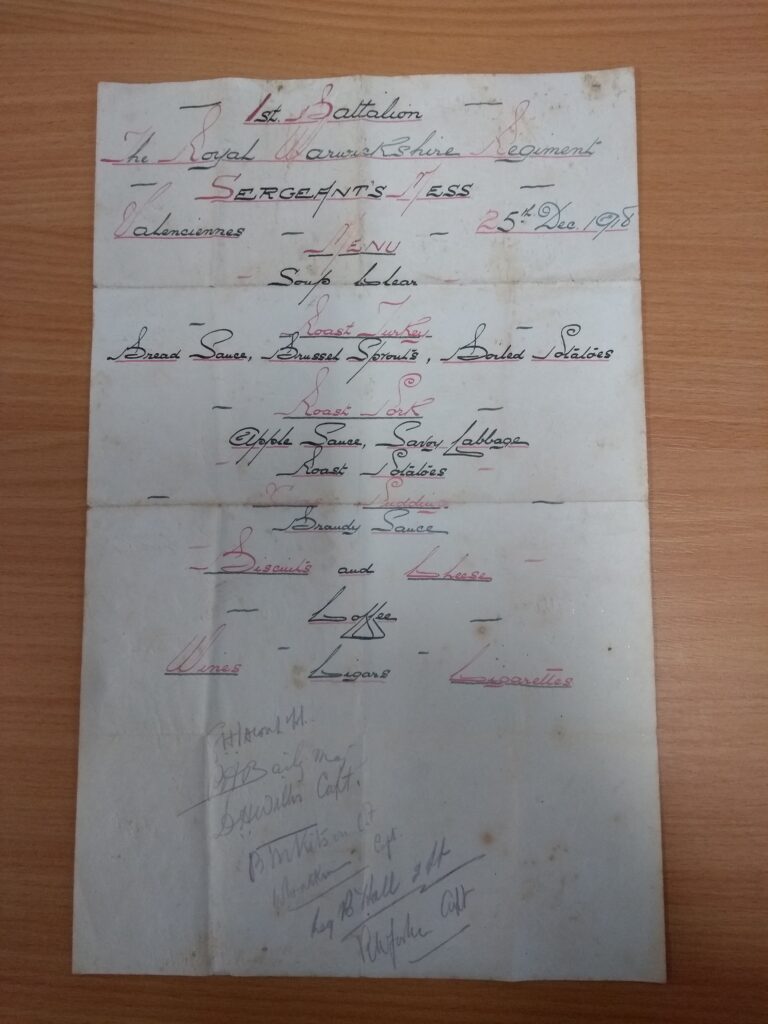 1st. Battalion
The Royal Warwickshire Regiment
SERGEANT'S MESS
Valenciennes 25th Dec. 1918
MENU
Soup Clear
Roast Turkey
Bread Sauce, Brussel Sprouts, Boiled Potatoes
Roast Pork
Apple Sauce, Savoy Cabbage
Roast Potatoes
Xmas Pudding
Brandy Sauce
Biscuits and Cheese
Coffee
Wines - Cigars - Cigarettes
Baily Maj
Willis Capt.
Lt
Capt
Reg B. Hall 2 Lt
Capt